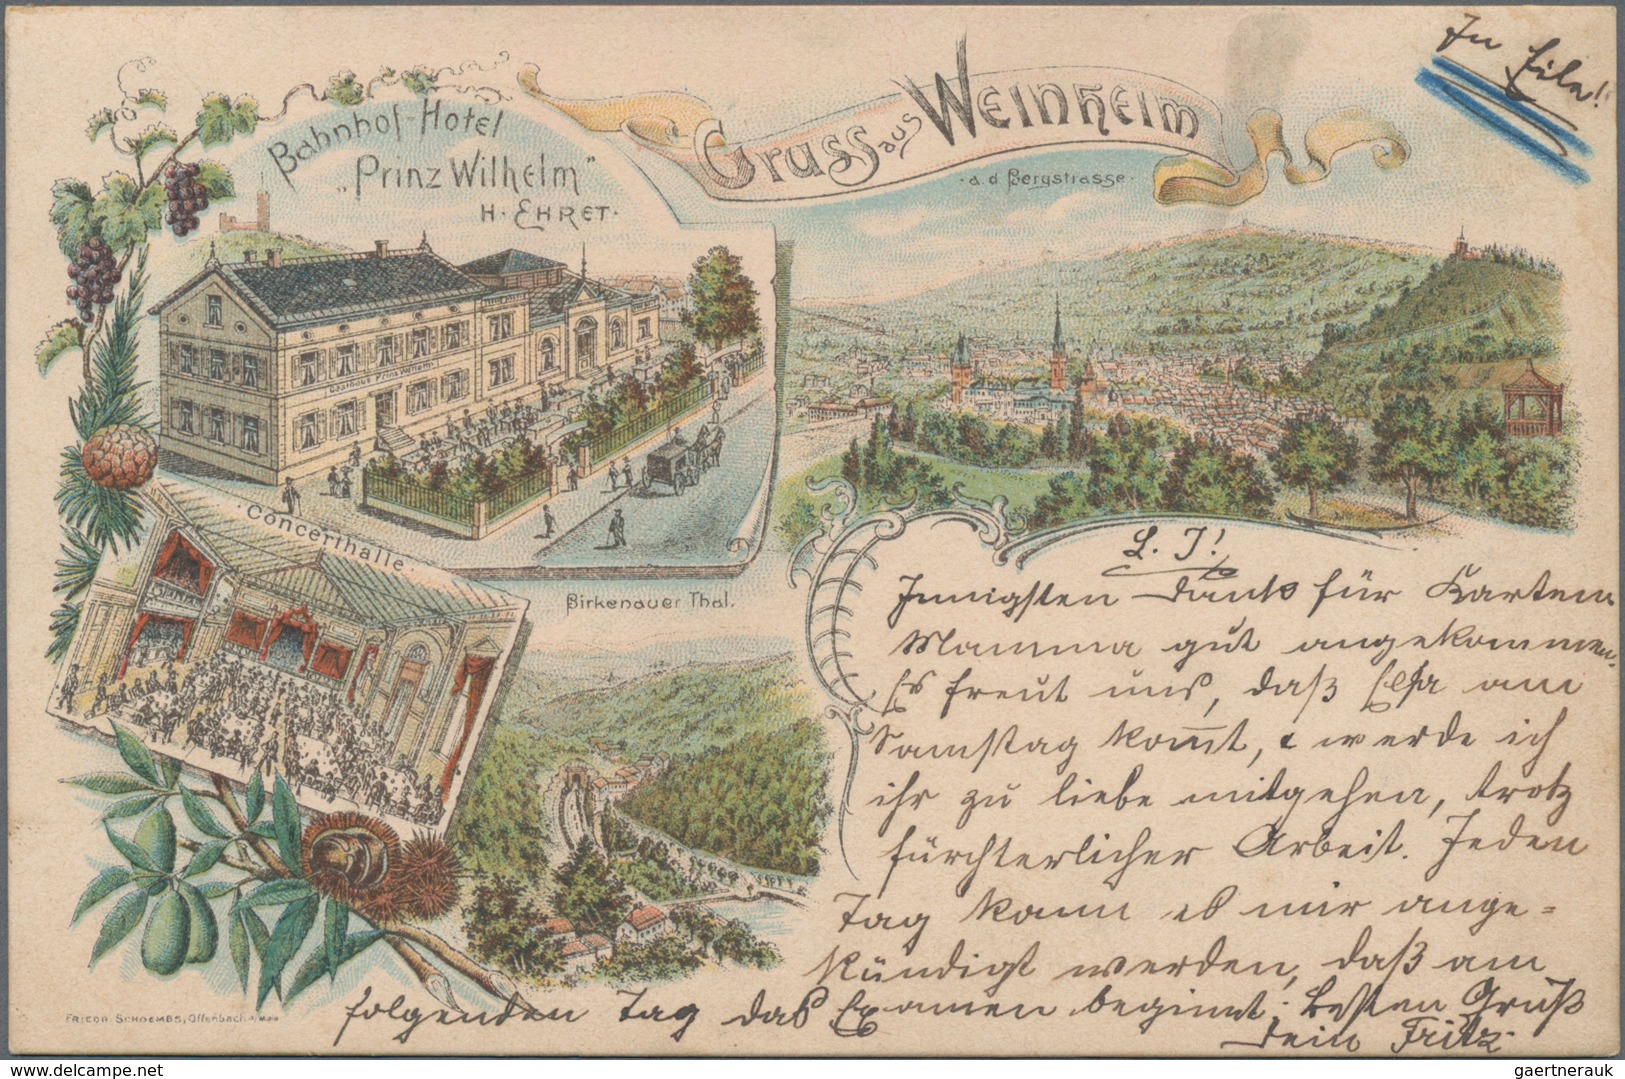 In Eile!
Gruss aus Weinheim
a. d. Bergstrasse.
Bahnhof-Hotel
„Prinz Wilhelm"
H. Ehret.
Gasthaus Prinz Wilhelm
Concerthalle.
Birkenauer Thal.
L. J!
Innigsten Dank für Karten
Mamma gut angekommen.
Es freut uns, daß Elsa am
Samstag kom̄t, & werde ich
ihr zu liebe mitgehen, trotz
fürchterlicher Arbeit. Jeden
Tag kann es mir ange=
kündigt werden, daß am
folgenden Tag das Examen beginnt; Besten Gruß
Dein Fritz.
Friedr. Schoembs, Offenbach a/Main
gaertnerauk